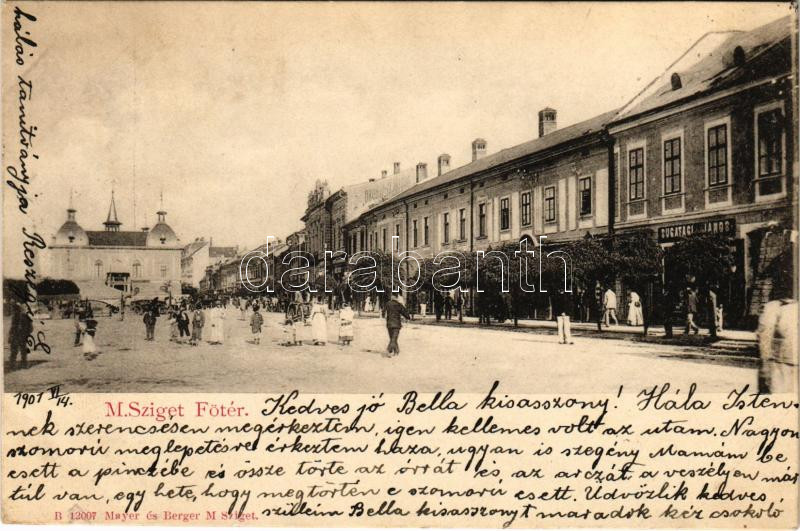 hálás tanítványja Reszegi
DUGATAGI JÁNOS
darabanth.com
1901 VI/14.
M.Sziget Főtér.
Kedves jó Bella kisasszony! Hála Isten-
nek szerencsésen megérkeztem, igen kellemes volt az utam. Nagyon
szomorú meglepetésre érkeztem haza, ugyan is szegény Mamám be
esett a pinczébe és össze törte az órrát és az arczát, a veszélyen már
túl van, egy hete, hogy megtörtén e szomorú esett. Üdvözlik kedves
szüleim Bella kisasszonyt maradok kéz csokoló
B 12007 Mayer és Berger M Sziget.